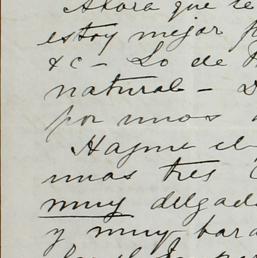 Ahora que te
estoy mejor p
&c - Lo de
natural -
por unos
Hagme el
unas tres
muy delgad
y muy bara